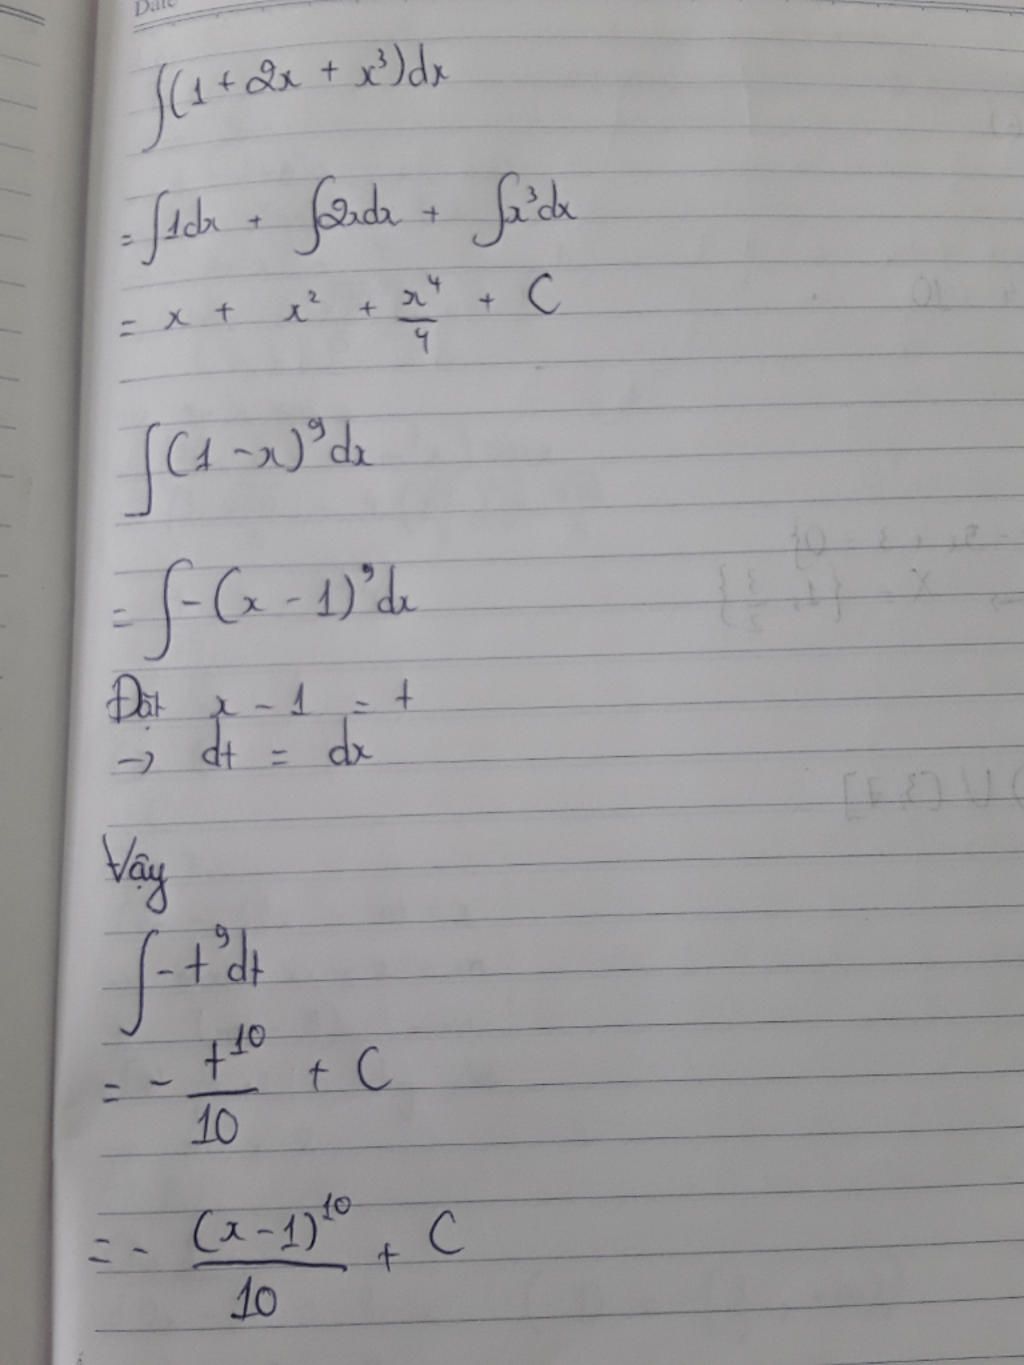 Date
∫(1 + 2x + x³)dx
= ∫1dx + ∫2xdx + ∫x³dx
= x + x² + x⁴/4 + C
∫(1 - x)⁹dx
= ∫-(x - 1)⁹dx
Đặt x - 1 = t
→ dt = dx
Vậy
∫-t⁹dt
= - t¹⁰/10 + C
= - (x-1)¹⁰/10 + C